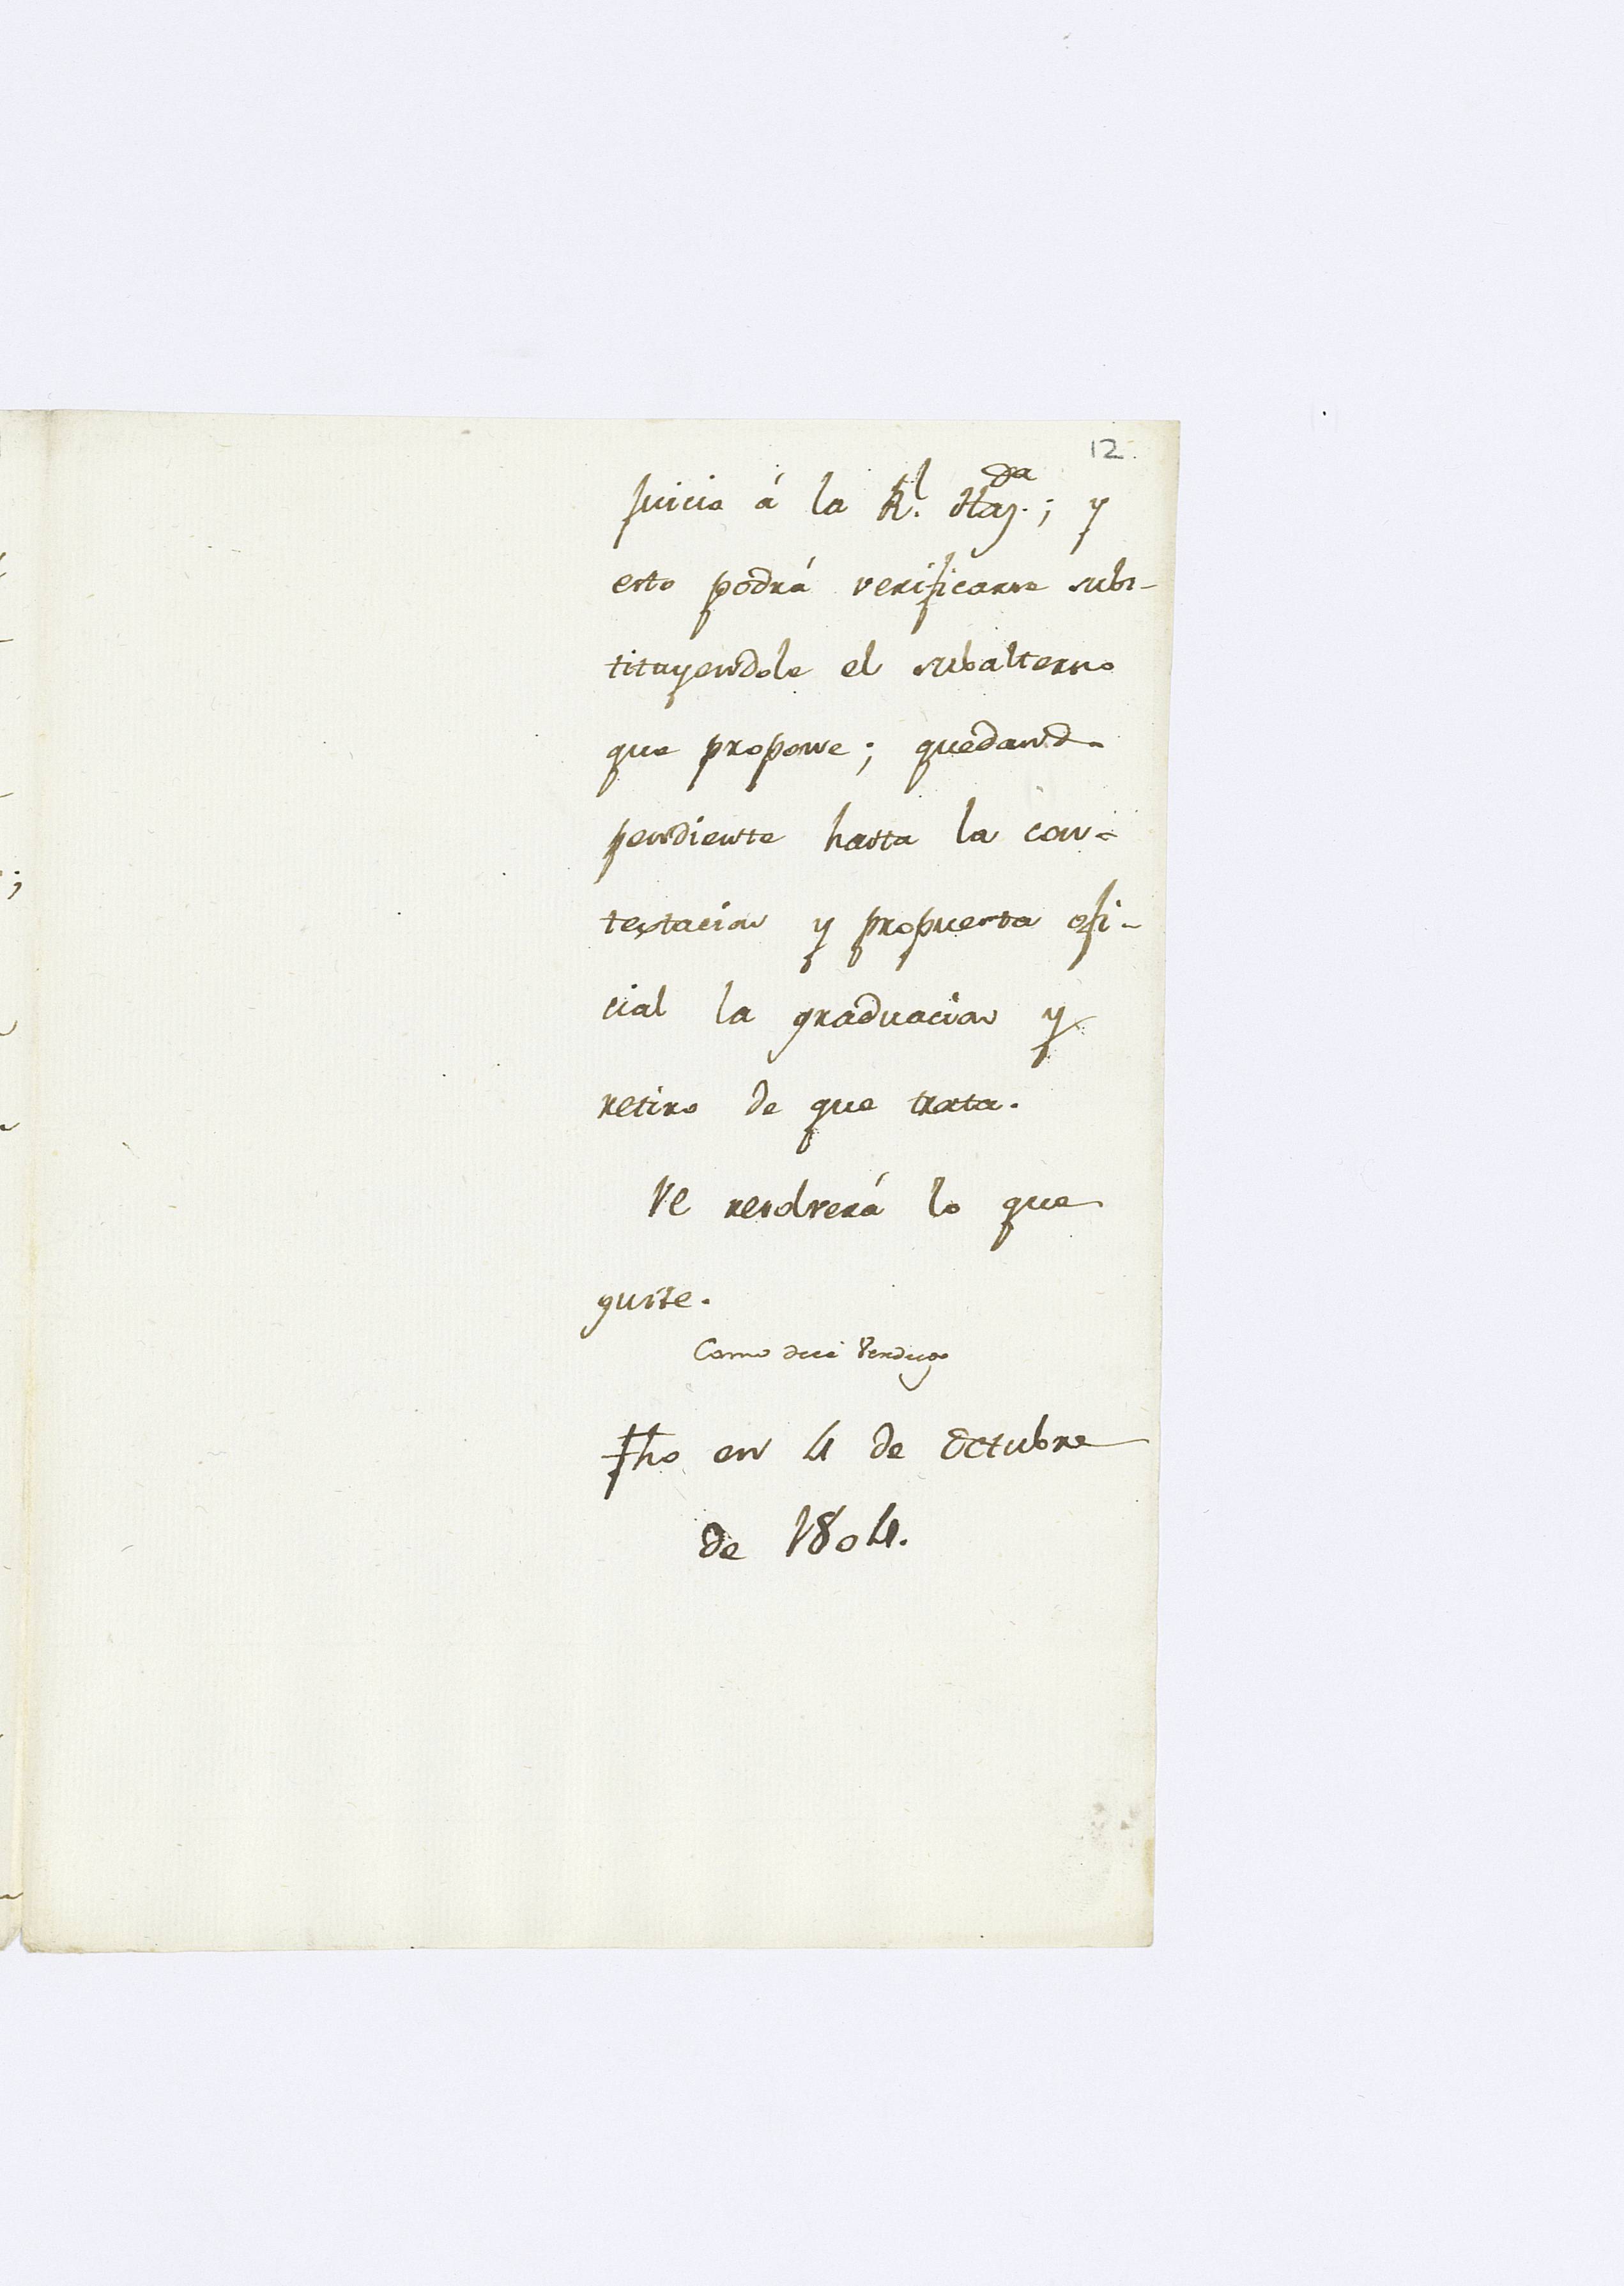 12.
juicio á la Rl. Hazda.; y
esto podrá verificarse subs-
tituyendole el subalterno
que propone; quedando
pendiente hasta la con-
textacion y propuesta ofi-
cial la graduacion y
retiro de que trata.
VE resolverá lo que
guste.
Como dice Verdugo
Fho en 4 de Octubre
de 1804.